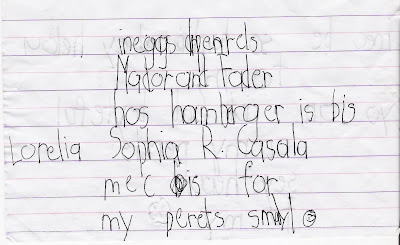 ineggs
Mador and Fader
hos hamberger is bis
Lorelia Sophia R. Casala
mec is for
my perets smyl